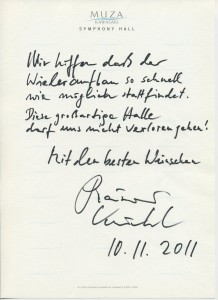 MUZA
KAWASAKI
SYMPHONY HALL
Wir hoffen daß der
Wiederaufbau so schnell
wie möglich stattfindet.
Diese großartige Halle
darf uns nicht verloren gehen!
Mit den besten Wünschen
Rainer
Küchl
10.11.2011